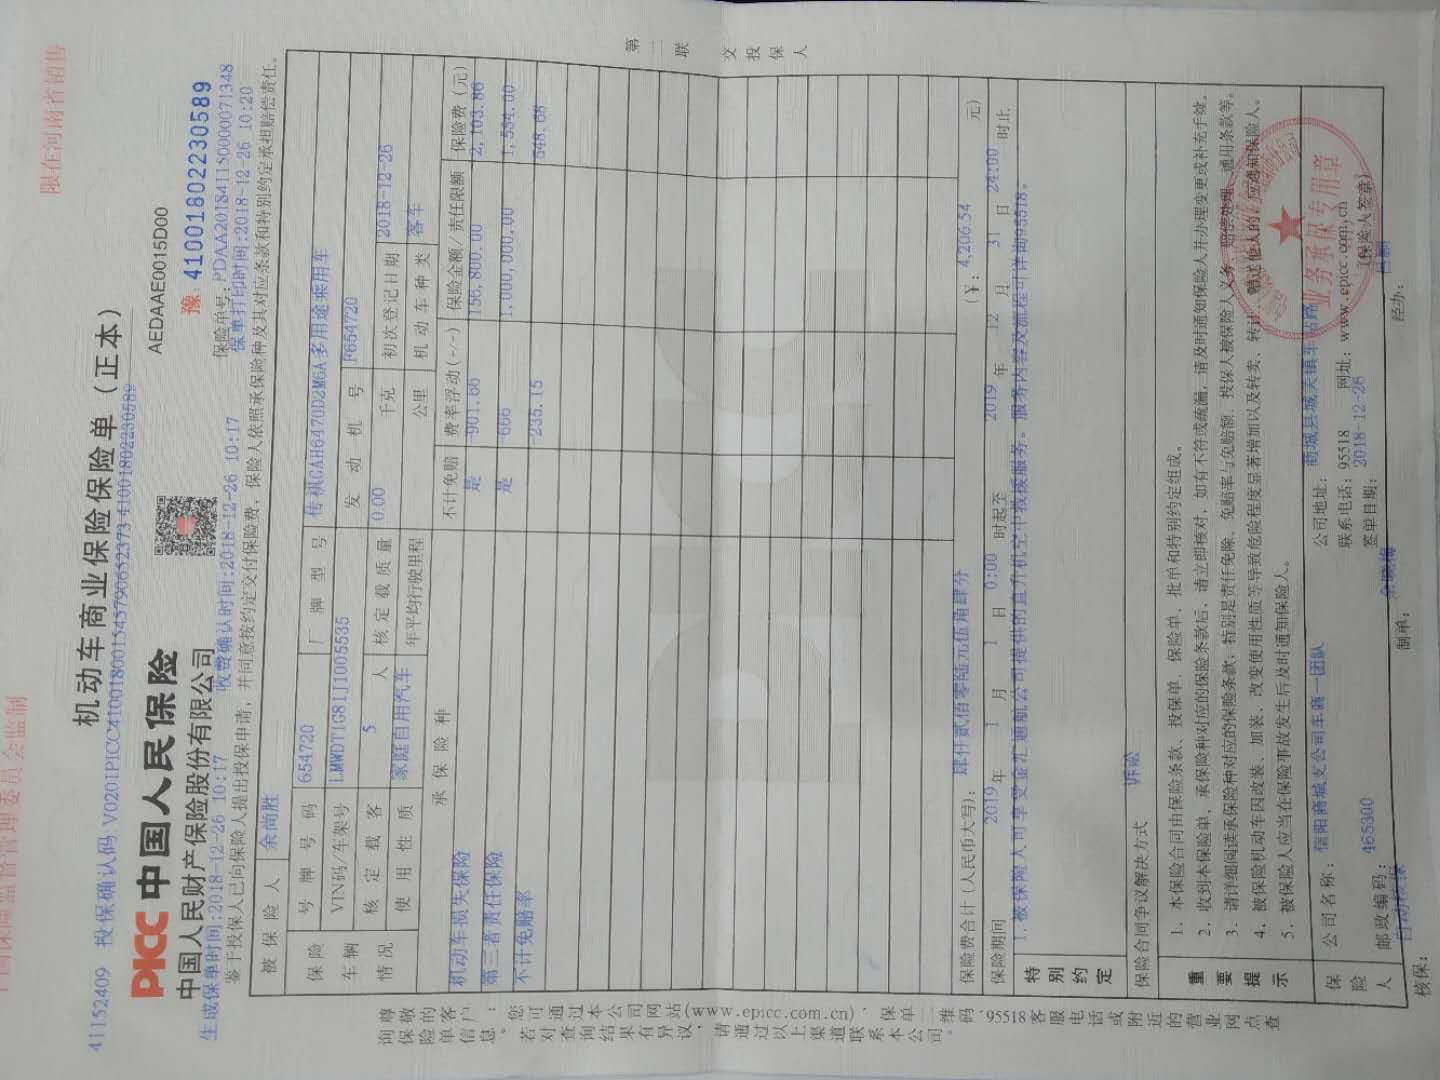 中国保险监督管理委员会监制
限在河南省销售
机动车商业保险单（正本）
41152409 投保确认码
AEDAAE0015D00
PICC 中国人民保险
中国人民财产保险股份有限公司
豫：41001802230589
保险单号：PDAA201841150000071348
生成保单时间:2018-12-26 10:17 收费确认时间:2018-12-26 10:17 保单打印时间:2018-12-26 10:20
鉴于投保人已向保险人提出投保申请，并同意按约定交付保险费，保险人依照承保险种及其对应条款和特别约定承担赔偿责任。
被保险人 余尚胜
保险车辆情况
号牌号码 654720 厂牌型号 传祺GAH6470D2M6A多用途乘用车
VIN码/车架号 LMWDT1G81J1005535 发动机号 F654720
核定载客 5 人 核定载质量 0.00 千克 初次登记日期 2018-12-26
使用性质 家庭自用汽车 年平均行驶里程 公里 机动车种类 客车
承保险种 不计免赔 费率浮动(+/-) 保险金额/责任限额 保险费（元）
机动车损失保险 是 -901.66 156,800.00 2,103.86
第三者责任保险 是 -666 1,000,000.00 1,554.00
不计免赔率 -235.15 548.68
保险费合计（人民币大写）： 肆仟贰佰零陆元伍角肆分 （￥: 4,206.54 元）
保险期间 2019 年 1 月 1 日 0:00 时起至 2019 年 12 月 31 日 24:00 时止
特别约定
1.被保险人可享受金汇通航公司提供的直升机空中救援服务。服务内容及流程可详询95518。
保险合同争议解决方式 诉讼
重要提示
1、本保险合同由保险条款、投保单、保险单、批单和特别约定组成。
2、收到本保险单、承保险种对应的保险条款后，请立即核对，如有不符或疏漏，请及时通知保险人并办理变更或补充手续。
3、请详细阅读承保险种对应的保险条款，特别是责任免除、免赔率与免赔额、投保人被保险人义务、赔偿处理、通用条款等。
4、被保险机动车因改装、加装、改变使用性质等导致危险程度显著增加以及转卖、转让、赠送他人的，应通知保险人。
5、被保险人应当在保险事故发生后及时通知保险人。
保险人
公司名称： 信阳商城支公司车商一团队 公司地址： 商城县城关镇车站路
联系电话： 95518 网址：www.epicc.com.cn
邮政编码： 465300 签单日期： 2018-12-26 （保险人签章）
业务承保专用章
核保： 自动核保 制单： 经办：
第一联 交投保人
尊敬的客户：您可通过本公司网站(www.epicc.com.cn)、保单二维码、95518客服电话或附近的营业网点查询保险单信息。若对查询结果有异议，请通过以上渠道联系本公司。